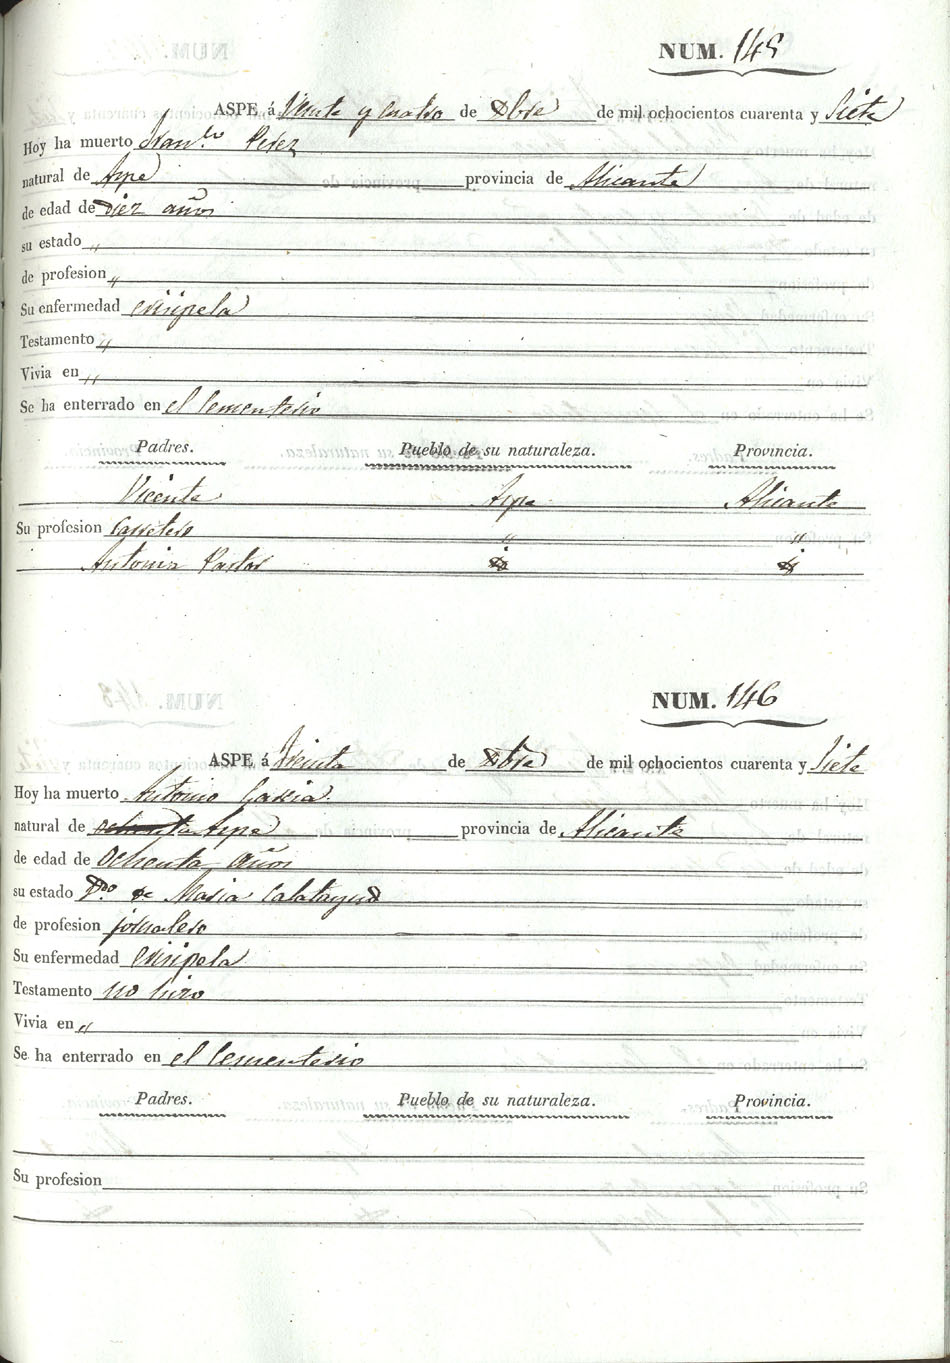 NUM. 145
ASPE á Veinte y Cuatro de Dbre de mil ochocientos cuarenta y Siete
Hoy ha muerto Fran.co Perez
natural de Aspe provincia de Alicante
de edad de diez años
su estado „
de profesion „
Su enfermedad erisipela
Testamento „
Vivia en „
Se ha enterrado en el Cementerio
Padres. Pueblo de su naturaleza. Provincia.
Vicente Aspe Alicante
Su profesion Carretero „ „
Antonia Pastor id id
NUM. 146
ASPE á Treinta de Dbre de mil ochocientos cuarenta y Siete
Hoy ha muerto Antonio Garcia
natural de Aspe provincia de Alicante
de edad de Ochenta años
su estado V.do de Maria Calatayud
de profesion jornalero
Su enfermedad erisipela
Testamento no hizo
Vivia en „
Se ha enterrado en el Cementerio
Padres. Pueblo de su naturaleza. Provincia.
Su profesion